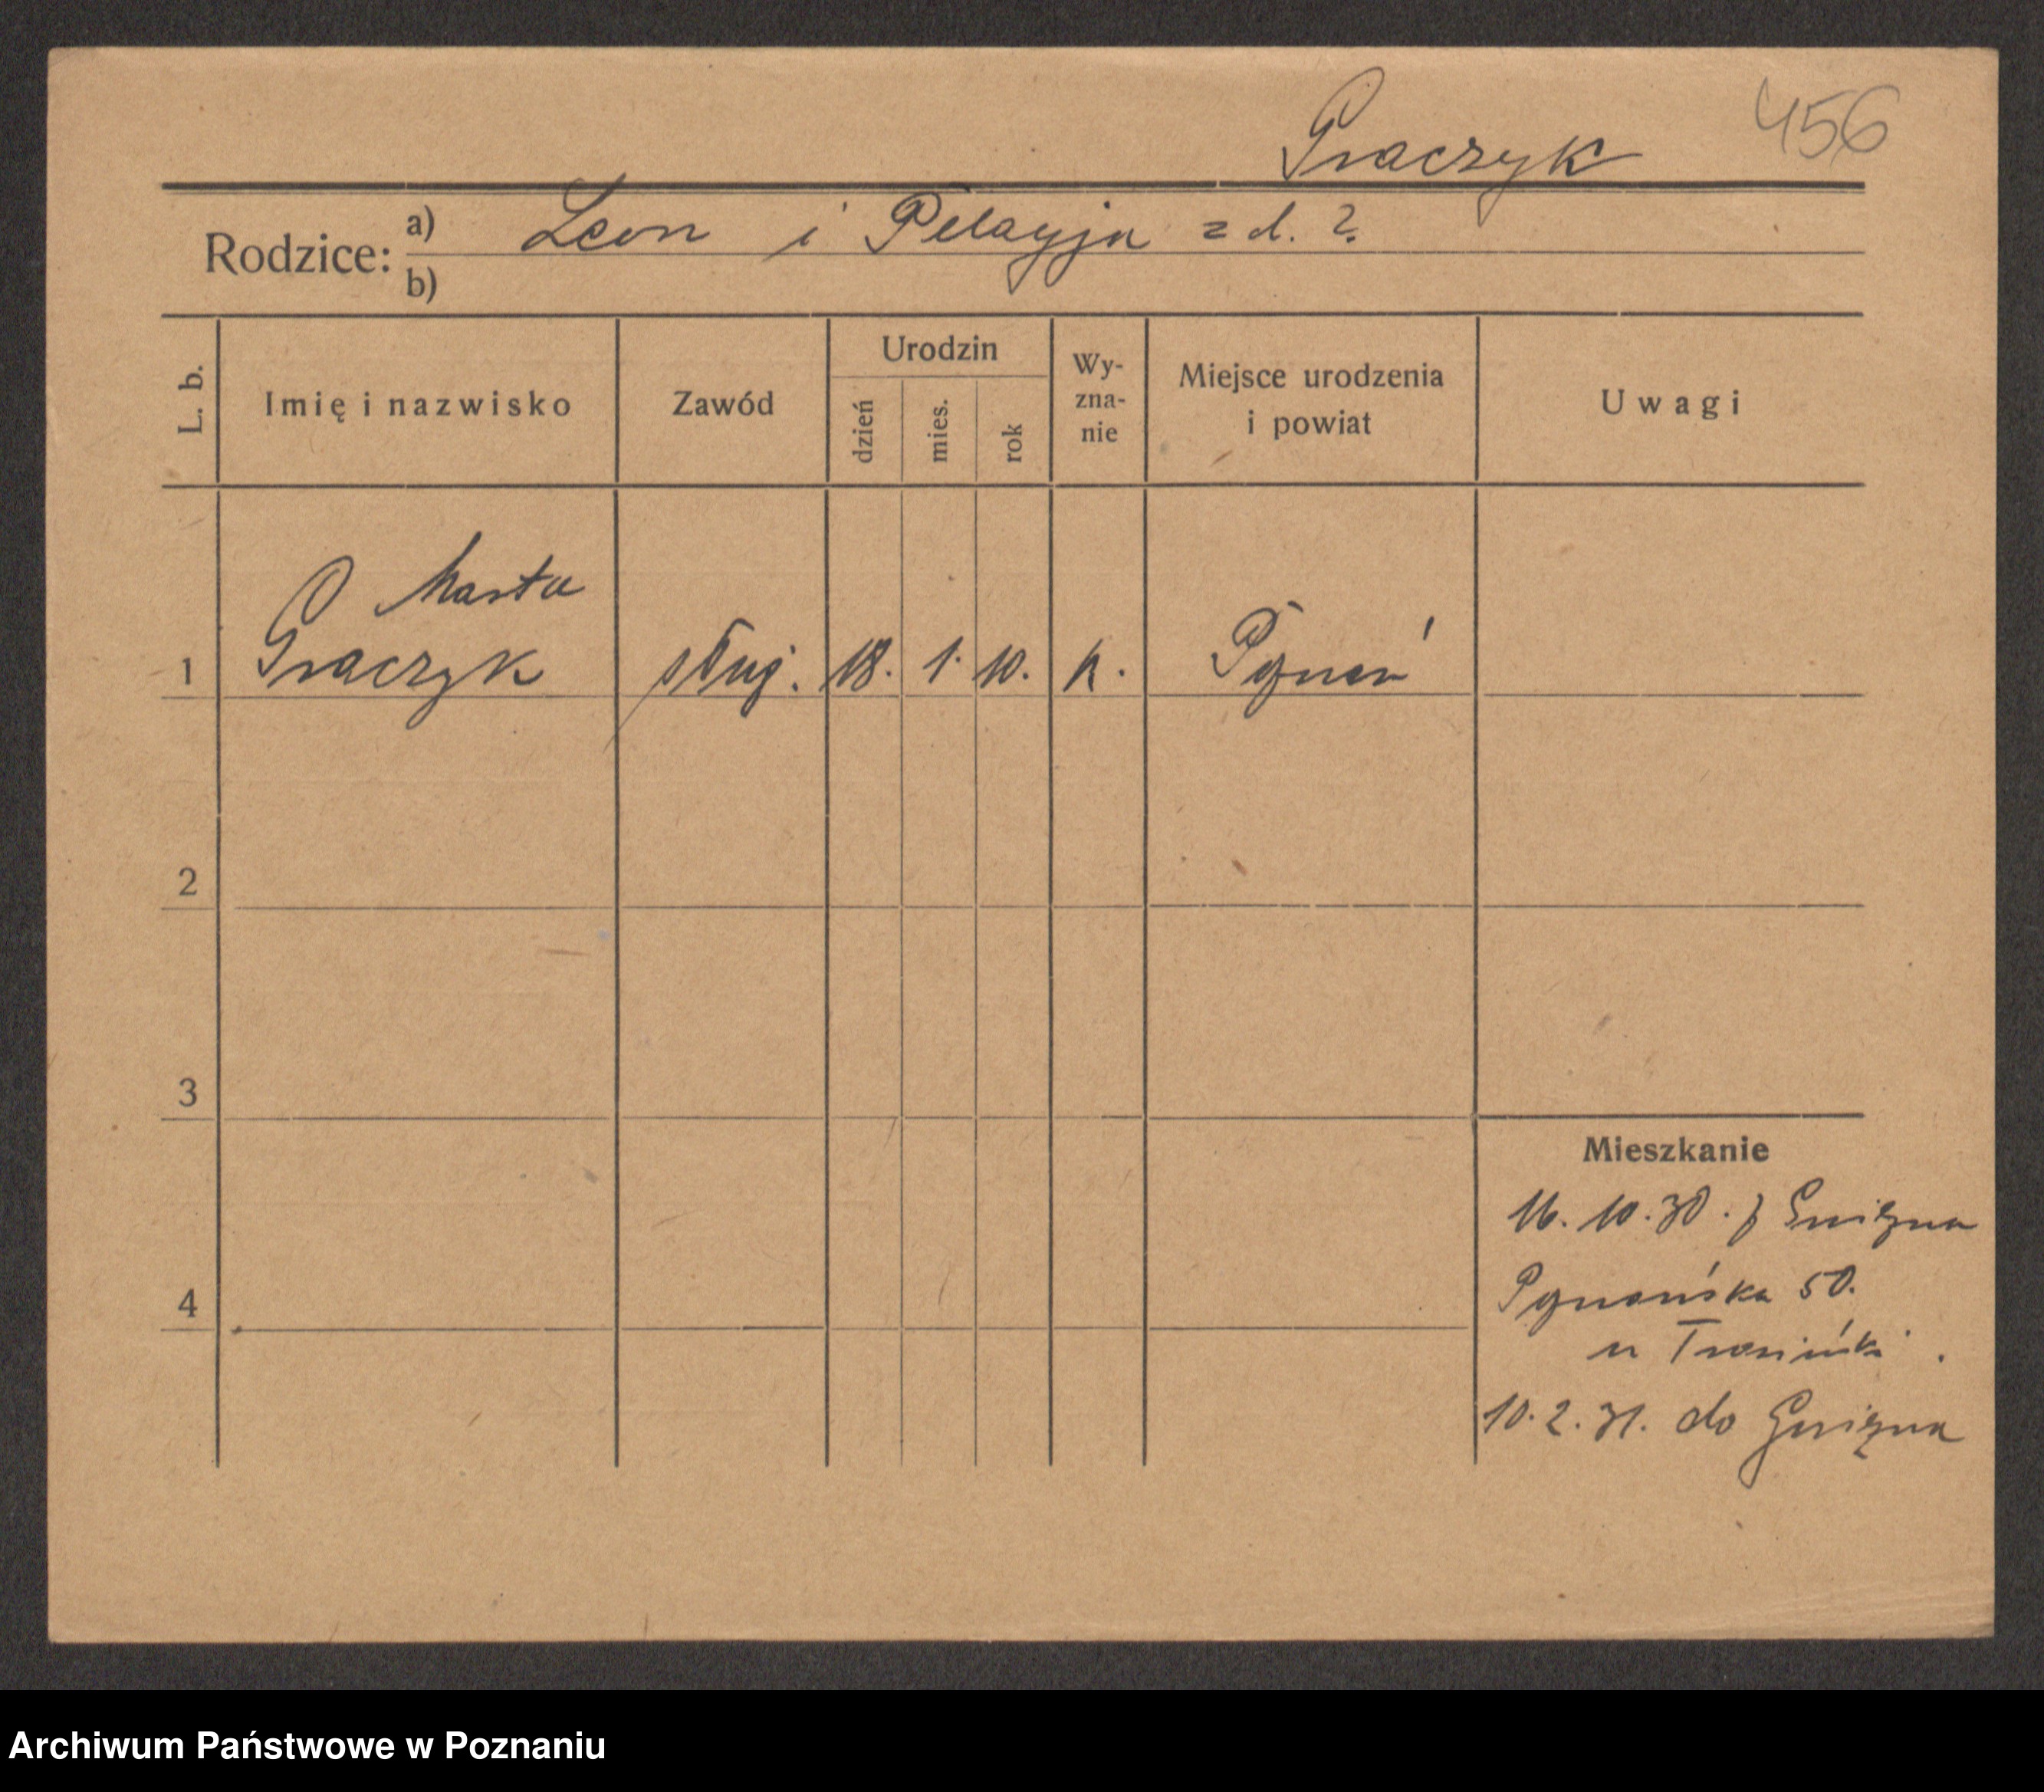 Graczyk 456
Rodzice: a) Leon i Pelagja z d. ?
b)
L. b. Imię i nazwisko Zawód Urodzin dzień mies. rok Wy-zna-nie Miejsce urodzenia i powiat Uwagi
Marta
1 Graczyk służ. 18. 1. 10. k. Poznań
2
3
Mieszkanie
16. 10. 30. z Gniezna
4 Poznańska 50.
u
10. 2. 31. do Gniezna
Archiwum Państwowe w Poznaniu